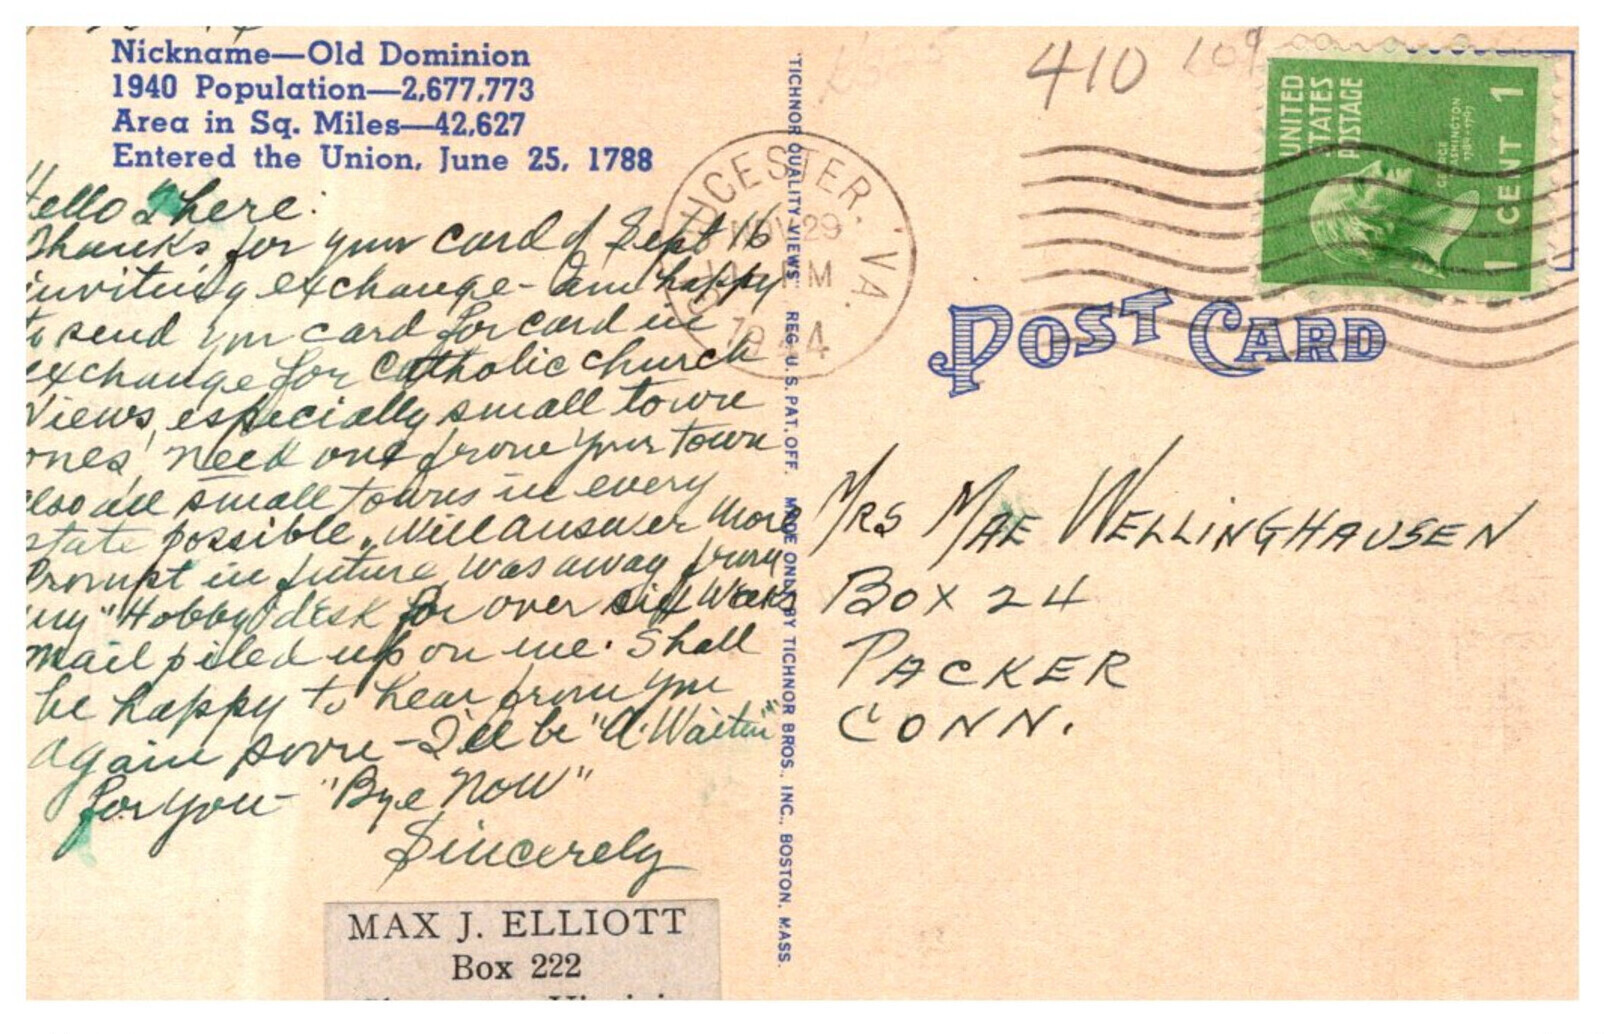 Nickname—Old Dominion
1940 Population—2,677,773
Area in Sq. Miles—42,627
Entered the Union, June 25, 1788
Hello there:
Thanks for your card of Sept 16
inviting exchange - am happy
to send you card for card in
exchange for Catholic church
views, especially small town
ones, need one from your town
also all small towns in every
state possible. Will answer more
prompt in future, was away from
my "Hobby" desk for over six weeks
mail piled up on me. Shall
be happy to hear from you
again soon - I'll be "A. Waitin"
for you - "Bye Now"
Sincerely
MAX J. ELLIOTT
Box 222
"TICHNOR QUALITY VIEWS" REG. U. S. PAT. OFF. MADE ONLY BY TICHNOR BROS., INC., BOSTON, MASS.
410 10¢
UCESTER, VA.
NOV 29
PM
1944
UNITED
STATES
POSTAGE
GEORGE
WASHINGTON
1789-1797
1 CENT 1
POST CARD
MRS MAE WELLINGHAUSEN
BOX 24
PACKER
CONN.